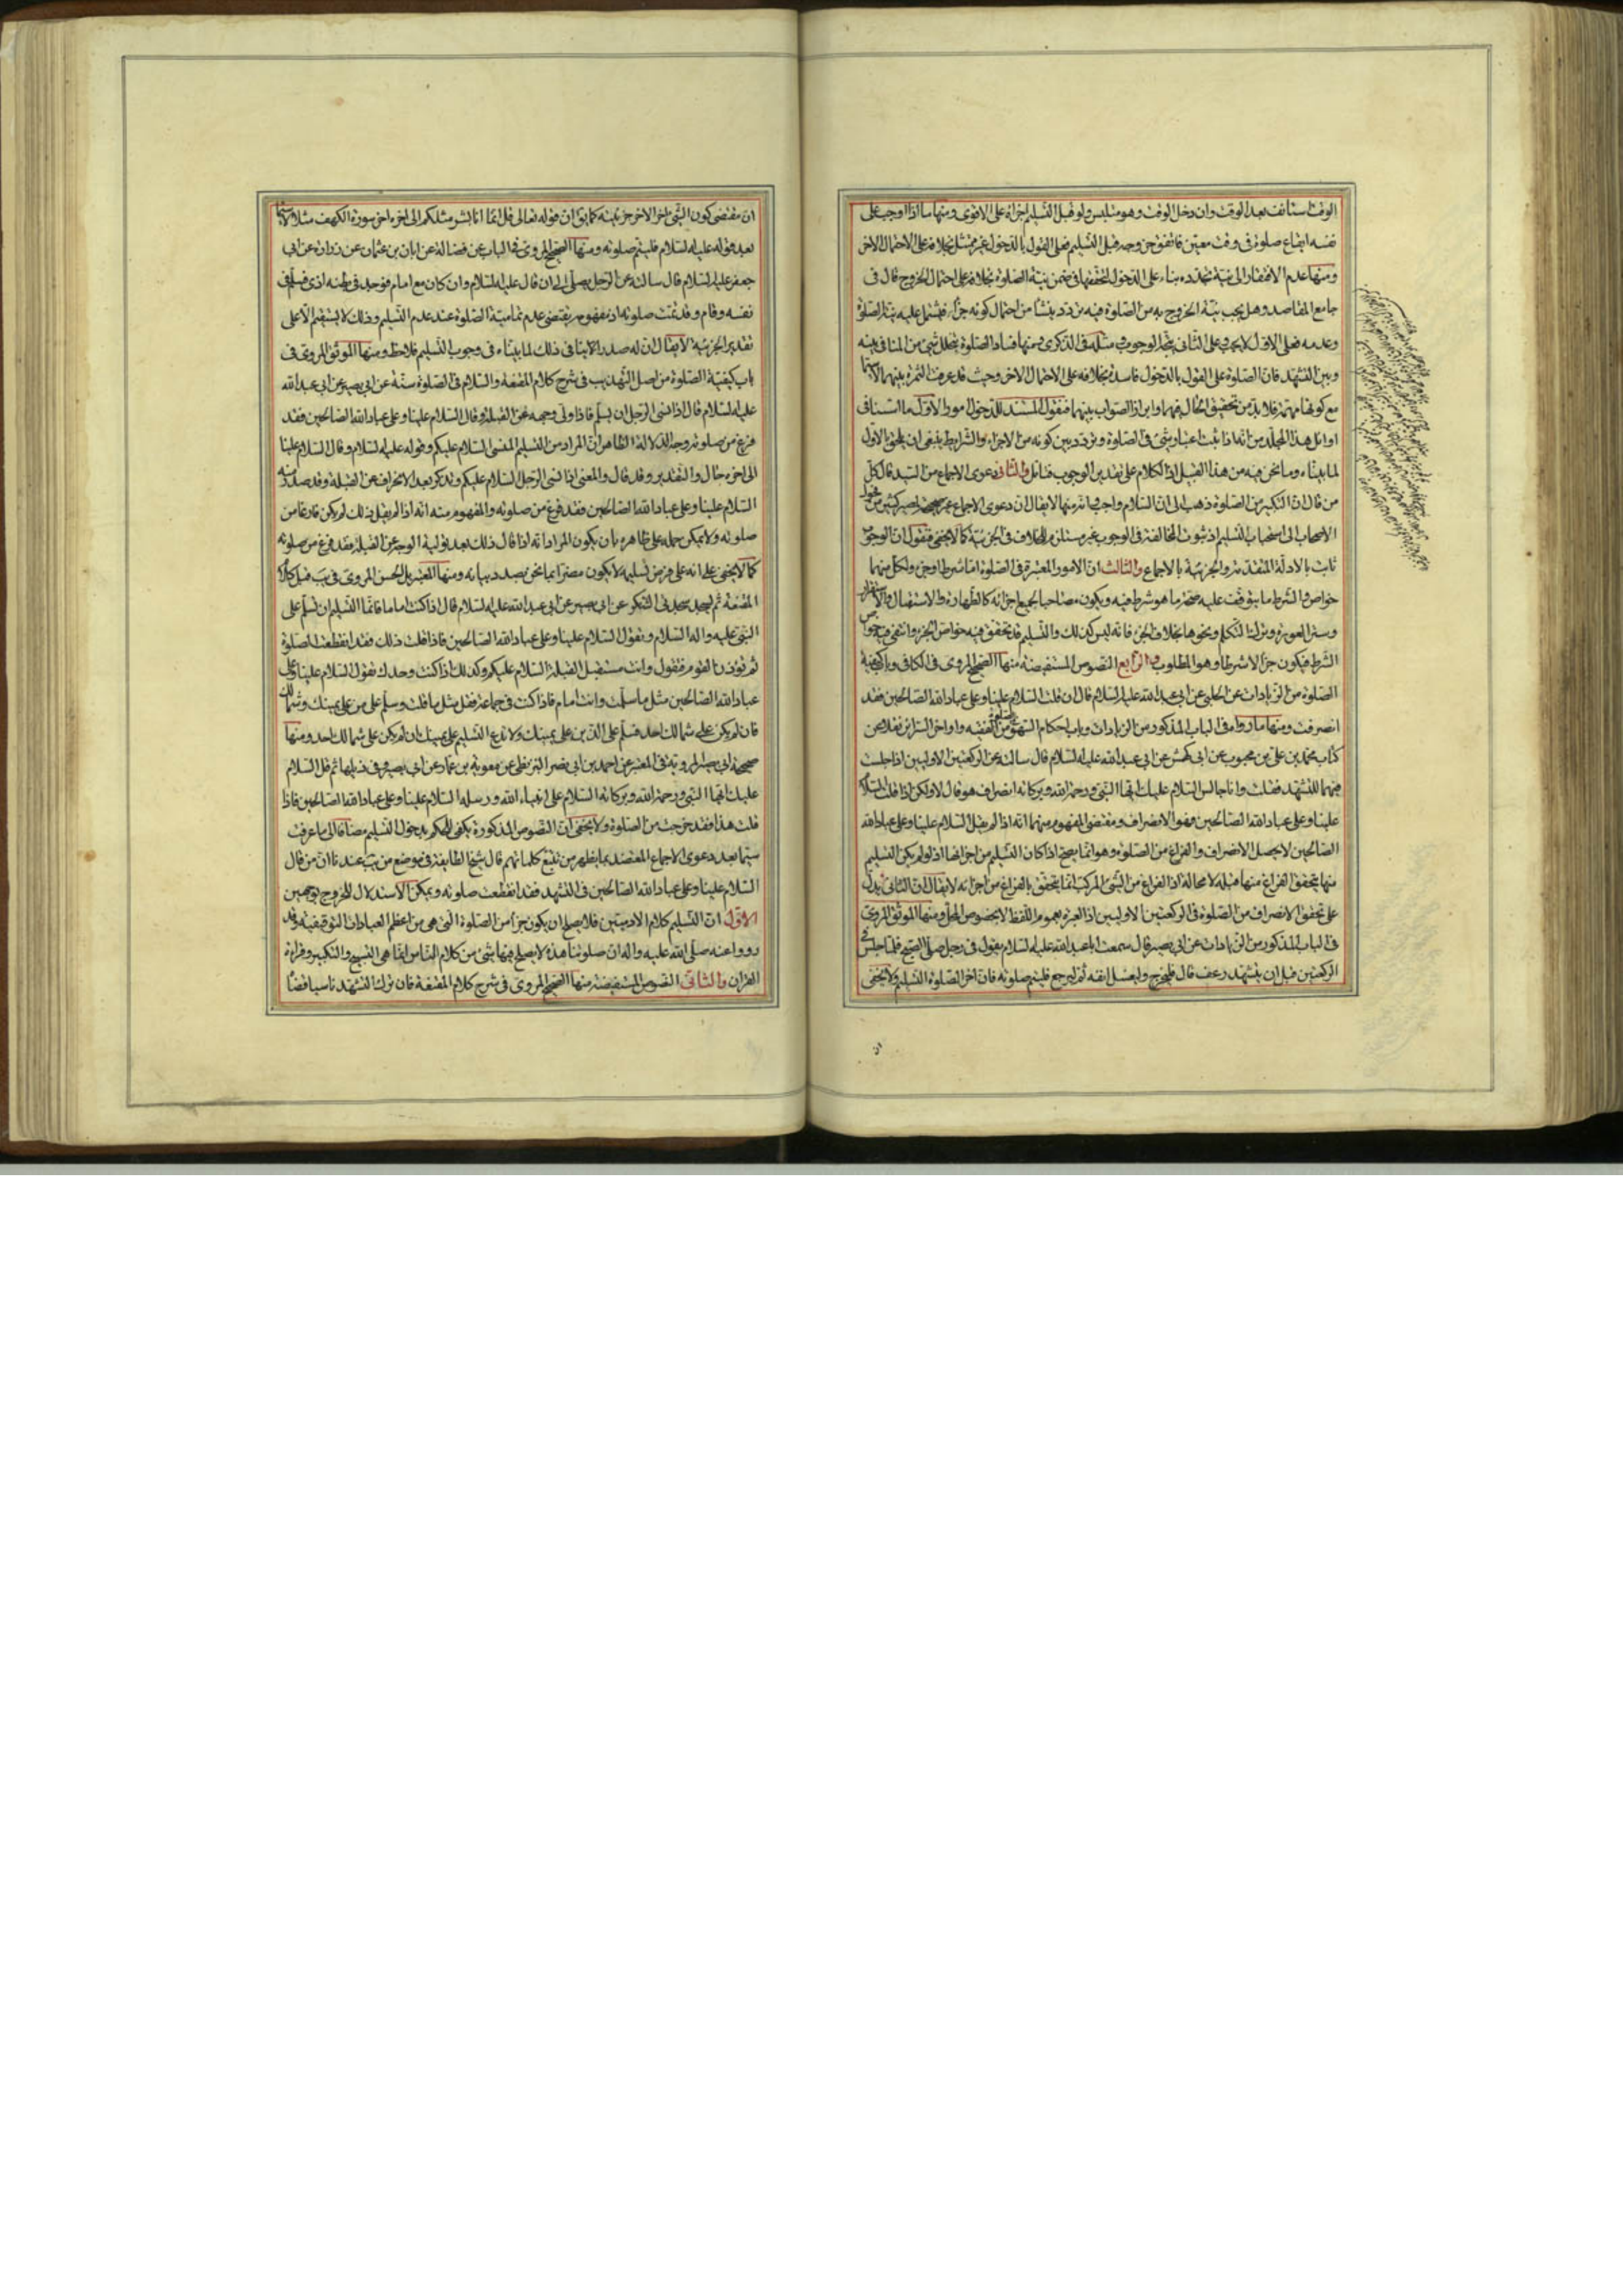 الوقت استأنف بعد الوقت وان دخل الوقت وهو متلبس ولو قبل التسليم اجزأه على الاقوى ومنها ما اذا اوجب على
نفسه ايقاع صلوة فى وقت معين فاتفق خروجه قبل التسليم فعلى القول بالدخول غير ممتثل بخلافه على الاحتمال الاخر
ومنها عدم الافتقار الى نية مجددة بناء على الدخول لتحققها فى ضمن نية الصلوة بخلافه على احتمال الخروج قال فى
جامع المقاصد وهل يجب نية الخروج به من الصلوة فيه تردد ينشأ من احتمال كونه جزأ فيشتمل عليه نية الصلوة
وعدمه فعلى الاول لا يجب وعلى الثانى يتجه الوجوب فى مسئلة فى الذكرى ومنها فساد الصلوة بتخلل شىء من المنافى بينه
وبين التشهد فان الصلوة على القول بالدخول فاسدة بخلافه على الاحتمال الاخر وحيث قد عرفت الثمرة بينهما
مع كونها مهمة فلا بد من تحقيق الحال فيهما وابراز الصواب بينهما فنقول المستند للدخول امور الاول ما اسلفنا فى
اوائل هذا المجلد من انه اذا ثبت اعتبار شىء فى الصلوة وتردد بين كونه من الاجزاء والشرايط ينبغى ان يلحق بالاول
لما بيناه وما نحن فيه من هذا القبيل اذ الكلام على تقدير الوجوب فتأمل والثانى دعوى الاجماع من السيد قال كل
من قال ان التكبير من الصلوة ذهب الى ان السلام واجب وانه منها لا يقال ان دعوى الاجماع غير صحيحة لمصير كثير من فحول
الاصحاب الى استحباب التسليم اذ ثبوت المخالفة فى الوجوب غير مستلزم للخلاف فى الجزئية كما لا يخفى فنقول ان الوجوب
ثابت بالادلة المتقدمة والجزئية بالاجماع والثالث ان الامور المعتبرة فى الصلوة اما شرط او جزء ولكل منهما
خواص والشرط ما يتوقف عليه صحة ما هو شرط فيه ويكون مصاحبا لجميع اجزائه كالطهارة والاستقبال والاستقرار
وستر العورة وترك التكلم ونحوها بخلاف الجزء فانه ليس كذلك والتسليم قد تحقق فيه خواص الجزء وانتفى فيه خواص
الشرط فيكون جزأ لا شرطا وهو المطلوب والرابع النصوص المستفيضة منها الصحيح المروى فى الكافى وباب كيفية
الصلوة من الزيادات عن الحلبى عن ابى عبد الله عليه السلام قال ان قلت السلام علينا وعلى عباد الله الصالحين فقد
انصرفت ومنها ما رواه فى الباب المذكور من الزيادات وباب احكام السهو من الفقيه واواخر السرائر نقلا عن
كتاب محمد بن على بن محبوب عن ابى كهمش عن ابى عبد الله عليه السلام قال سالته عن الركعتين الاوليين اذا جلست
فيهما للتشهد فقلت وانا جالس السلام عليك ايها النبى ورحمة الله وبركاته انصراف هو قال لا ولكن اذا قلت السلام
علينا وعلى عباد الله الصالحين فهو الانصراف ومقتضى المفهوم منهما انه اذا لم يقل السلام علينا وعلى عباد الله
الصالحين لا يحصل الانصراف والفراغ من الصلوة وهو انما يصح اذا كان التسليم من اجزائها اذ لو لم يكن التسليم
منها يتحقق الفراغ منها قبله لا محالة اذ الفراغ من الشىء المركب انما يتحقق بالفراغ من اجزائه لا يقال ان الثانى يدل
على تحقق الانصراف من الصلوة فى الركعتين الاوليين اذ العبرة بعموم اللفظ لا بخصوص المحل ومنها الموثق المروى
فى الباب المذكور من الزيادات عن ابى بصير قال سمعت ابا عبد الله عليه السلام يقول فى رجل صلى الصبح فلما جلس فى
الركعتين قبل ان يتشهد رعف قال فليخرج وليغسل انفه ثم ليرجع فليتم صلوته فان آخر الصلوة التسليم ولا يخفى
ان
ان مقتضى كون الشىء آخر الاخر جزئيته كما يقال ان قوله تعالى قل انما انا بشر مثلكم الى آخره آخر سورة الكهف مثلا لا سيما
بعد قوله عليه السلام فليتم صلوته ومنها الصحيح المروى فى الباب عن فضالة عن ابان بن عثمان عن زرارة عن ابى
جعفر عليه السلام قال سالته عن الرجل يصلى الى ان قال عليه السلام وان كان مع امام فوجد فى بطنه اذى فسلم فى
نفسه وقام فقد تمت صلوته اذ مفهومه يقتضى عدم تمامية الصلوة عند عدم التسليم وذلك لا يستقيم الا على
تقدير الجزئية لا يقال ان له صدرا لانا فى ذلك لما بيناه فى وجوب التسليم فلاحظ ومنها الموثق المروى فى
باب كيفية الصلوة من اصل التهذيب فى شرح كلام المقنعة والسلام فى الصلوة سنة عن ابى بصير عن ابى عبد الله
عليه السلام قال اذا نسى الرجل ان يسلم فاذا ولى وجهه عن القبلة وقال السلام علينا وعلى عباد الله الصالحين فقد
فرغ من صلوته وجه الدلالة الظاهر ان المراد من التسليم المنسى السلام عليكم وقوله عليه السلام وقال السلام علينا
الى اخره حال والتقدير وقد قال والمعنى اذا نسى الرجل السلام عليكم وتذكر بعد الانحراف عن القبلة وقد صدر منه
السلام علينا وعلى عباد الله الصالحين فقد فرغ من صلوته والمفهوم منه انه اذا لم يقل ذلك لم يكن فارغا من
صلوته ولا يمكن حمله على ظاهره بان يكون المراد انه اذا قال ذلك بعد تولية الوجه عن القبلة فقد فرغ من صلوته
كما لا يخفى على انه على فرض تسليمه لا يكون مضرا بما نحن بصدد بيانه ومنها المعتبر بل الحسن المروى فى يب قبيل كلام
المقنعة ثم ليسجد سجدتى الشكر عن ابى بصير عن ابى عبد الله عليه السلام قال اذا كنت اماما فانما التسليم ان تسلم على
النبى عليه واله السلام وتقول السلام علينا وعلى عباد الله الصالحين فاذا قلت ذلك فقد انقطعت الصلوة
ثم تؤذن القوم فتقول وانت مستقبل القبلة السلام عليكم وكذلك اذا كنت وحدك تقول السلام علينا وعلى
عباد الله الصالحين مثل ما سلمت وانت امام فاذا كنت فى جماعة فقل مثل ما قلت وسلم على من على يمينك وشمالك
فان لم يكن على شمالك احد فسلم على الذين على يمينك ولا تدع التسليم على يمينك ان لم يكن على شمالك احد ومنها
صحيحة ابى بصير المروية فى المعتبر عن احمد بن ابى نصر البزنطى عن معوية بن عمار عن ابى بصير وفى ذيلها ثم قل السلام
عليك ايها النبى ورحمة الله وبركاته السلام على انبياء الله ورسله السلام علينا وعلى عباد الله الصالحين فاذا
قلت هذا فقد خرجت من الصلوة ولا يخفى ان النصوص المذكورة يكفى للحكم بدخول التسليم مضافا الى ما عرفت
سيما بعد دعوى الاجماع المعتضد بما يظهر من تتبع كلماتهم قال شيخ الطايفة فى موضع من يب عندنا ان من قال
السلام علينا وعلى عباد الله الصالحين فى التشهد فقد انقطعت صلوته ويمكن الاستدلال للخروج بوجهين
الاول ان التسليم كلام الادميين فلا يصلح ان يكون جزأ من الصلوة التى هى من اعظم العبادات التوقيفية وقد
رووا عنه صلى الله عليه واله ان صلوتنا هذه لا يصلح فيها شىء من كلام الناس انما هى التسبيح والتكبير وقراءة
القران والثانى النصوص المستفيضة منها الصحيح المروى فى شرح كلام المقنعة فان ترك التشهد ناسيا قضاه